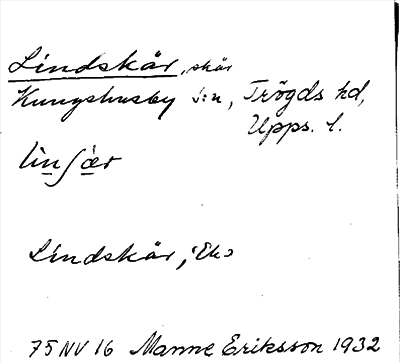 Lindskär, skär
Kungshusby sn, Trögds hd,
Upps. l.
lìnʃæ̀r
Lindskär, Ek>
75 NV 16 Manne Eriksson 1932